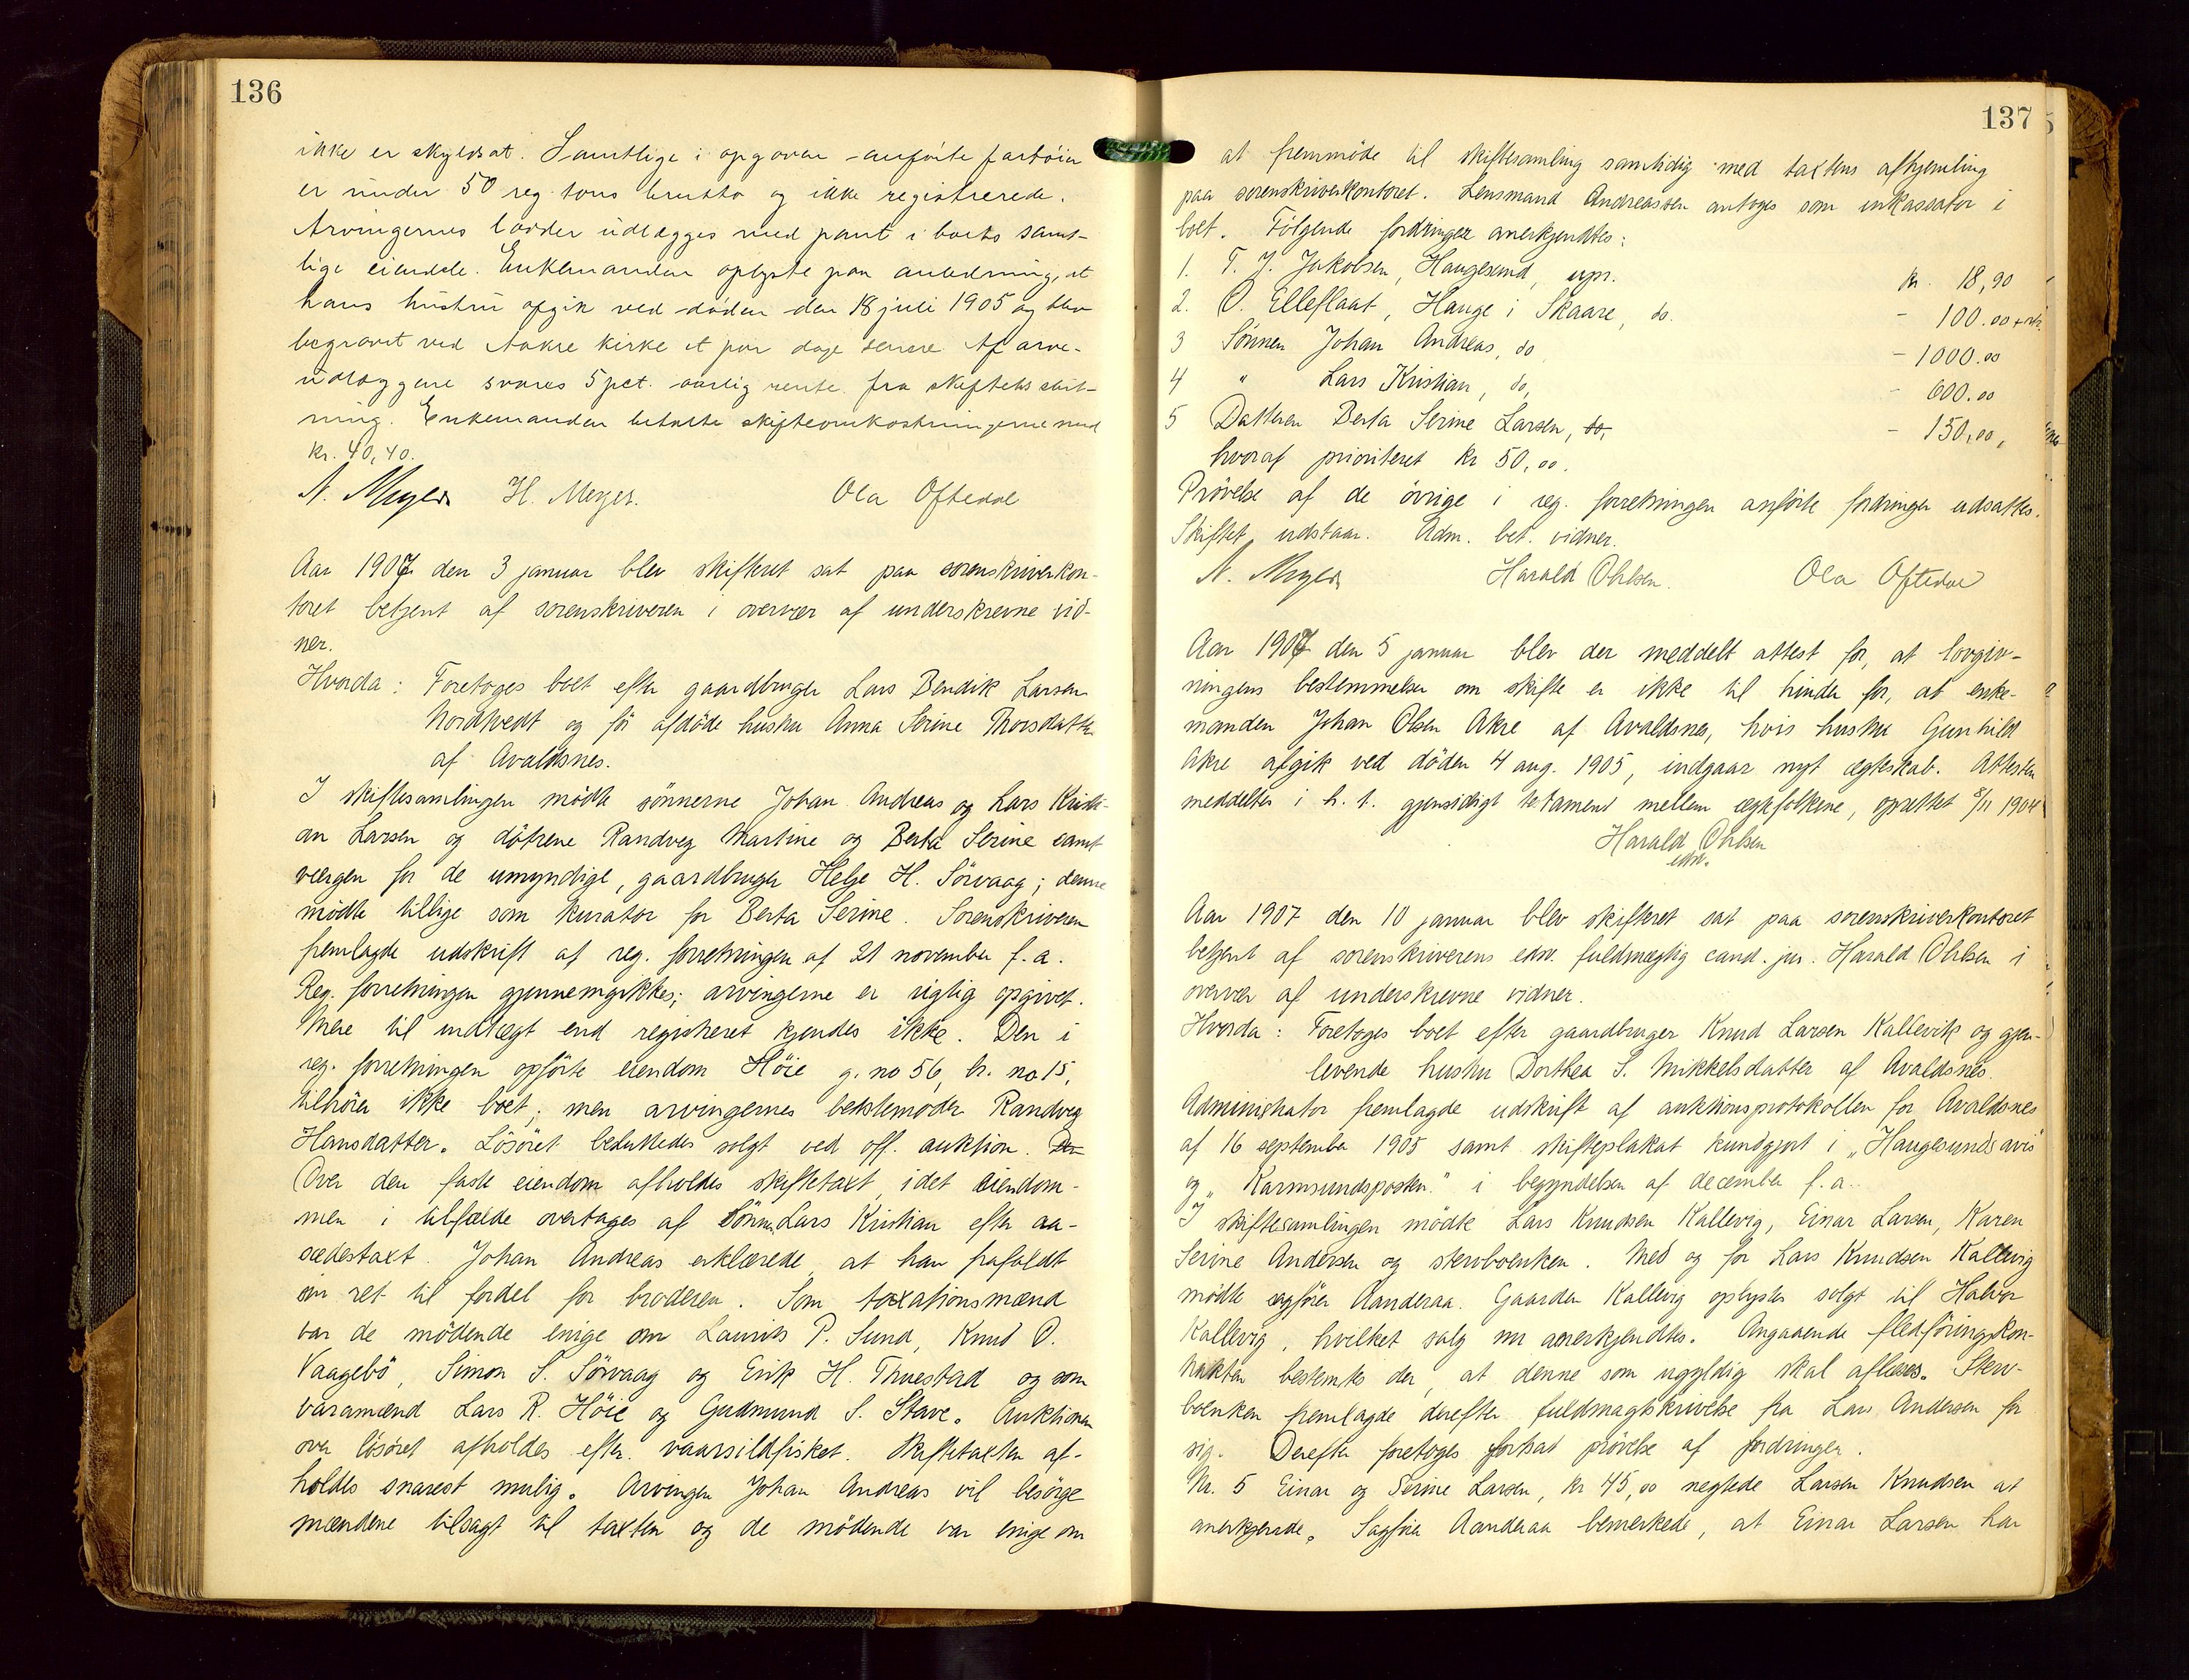 136
ikke er skyldsat. Samtlige i opgaven anførte fartøier
er under 50 reg. tons brutto og ikke registrerede.
Arvingernes lodder udlægges med pant i boets samt-
lige eiendele. Enkemanden oplyste paa anledning, at
hans hustru afgik ved døden den 18 juli 1905 og blev
begravet ved Aakre kirke et par dage senere. Af arve-
udlæggene svares 5 pct. aarlig rente fra skiftets slut-
ning. Enkemanden betalte skifteomkostningerne med
kr. 40,40.
N. Meyer H. Meyer. Ola Oftedal
Aar 1907 den 3 januar blev skifteret sat paa sorenskriverkon-
toret betjent af sorenskriveren i overvær af underskrevne vid-
ner.
Hvorda: Foretoges boet efter gaardbruger Lars Bendik Larsen
Nordtvedt og før afdøde hustru Anna Serine Thorsdatter
af Avaldsnes.
I skiftesamlingen mødte sønnerne Johan Andreas og Lars Kristi-
an Larsen og døtrene Randveg Martine og Berta Serine samt
værgen for de umyndige, gaardbruger Helge H. Sörvaag; denne
mödte tillige som kurator for Berta Serine. Sorenskriveren
fremlagde udskrift af reg. forretningen af 21 november f.a.
Reg. forretningen gjennemgikkes; arvingerne er rigtig opgivet.
Mere til indtægt end registreret kjendes ikke. Den i
reg. forretningen opførte eiendom Höie g. no 56, br. no 15,
tilhører ikke boet; men arvingernes bedstemoder Randveg
Hansdatter. Lösöret besluttedes solgt ved off. auktion. Den
Over den faste eiendom afholdes skiftetaxt, idet eiendom-
men i tilfælde overtages af Sönnen Lars Kristian efter aa-
sædestaxt. Johan Andreas erklærede at han frafaldt
sin ret til fordel for broderen. Som taxationsmænd
var de mödende enige om Laurits P. Sund, Knud O.
Vaagebö, Simon S. Sörvaag og Erik H. Thuestad og som
varamænd Lars R. Höie og Gudmund S. Stave. Auktionen
over lösöret afholdes efter vaarsildfisket. Skiftetaxten af-
holdes snarest mulig. Arvingen Johan Andreas vil besörge
mændene tilsagt til taxten og de mödende var enige om
137
at fremmöde til skiftesamling samtidig med taxtens afhjemling
paa sorenskriverkontoret. Lensmand Andreassen antoges som inkassator i
boet. Fölgende fordringer anerkjendtes:
1. T. J. Jakobsen, Haugesund, upr. kr. 18,90
2. O. Elleflaat, Hauge i Skaare, do. - 100.00
3 Sönnen Johan Andreas, do - 1000.00
4 " Lars Kristian, do, - 600.00
5 Datteren Berta Serine Larsen, do, - 150,00,
hvoraf prioriteret kr 50,00.
Prövelse af de övrige i reg. forretningen anförte fordringer udsattes.
Skiftet udstaar. Adm. bet. vidner.
N. Meyer Harald Ohlsen. Ola Oftedal
Aar 1907 den 5 januar blev der meddelt attest for, at lovgiv-
ningens bestemmelser om skifte er ikke til hinder for, at enke-
manden Johan Olsen Akre af Avaldsnes, hvis hustru Gunhild
Akre afgik ved döden 4 aug. 1905, indgaar nyt ægteskab. Attesten
meddeltes i h. t. gjensidigt testament mellem ægtefolkene, oprettet 8/11 1904
Harald Ohlsen
edsv.
Aar 1907 den 10 januar blev skifteret sat paa sorenskriverkontoret
betjent af sorenskriverens edsv. fuldmægtig cand. jur. Harald Ohlsen i
overvær af underskrevne vidner.
Hvorda: Foretoges boet efter gaardbruger Knud Larsen Kallevik og gjen-
levende hustru Dorthea S. Mikkelsdatter af Avaldsnes.
Administrator fremlagde udskrift af auktionsprotokollen for Avaldsnes
af 16 september 1905 samt skifteplakat kundgjort i „Haugesunds avis"
og „Karmsundsposten." i begyndelsen af december f.a.
I skiftesamlingen mödte Lars Knudsen Kallevig, Einar Larsen, Karen
Serine Andersen og stervboenken. Med og for Lars Knudsen Kallevig
mödte sagförer Aanderaa. Gaarden Kallevig oplystes solgt til Halvor
Kallevig, hvilket salg nu anerkjendtes. Angaaende fledföringskon-
trakten bestemtes der, at denne som ugyldig skal aflæses. Sterv-
boenken fremlagde derefter fuldmagtskrivelse fra Lars Andersen for
sig. Derefter foretoges fortsat prövelse af fordringer.
Nr. 5 Einar og Serine Larsen, kr 45,00 negtede Larsen Knudsen at
anerkjende. Sagförer Aanderaa bemerkede, at Einar Larsen har